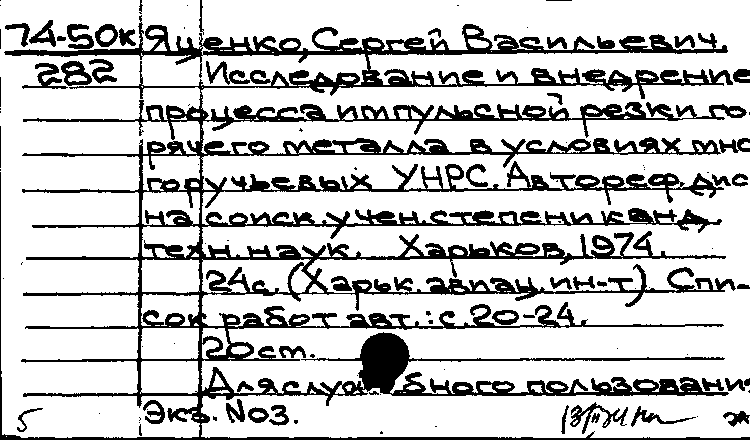 74-50к Яценко, Сергей Васильевич.
282 Исследование и внедрение
процесса импульсной резки го-
рячего металла в условиях мно
горучьевых УНРС. Автореф. дис
на соиск. учен. степени канд.
техн. наук. Харьков, 1974.
24с. (Харьк. авиац. ин-т). Спи-
сок работ авт.: с. 20-24.
20 см.
Для служебного пользования
5 Экз. №3.